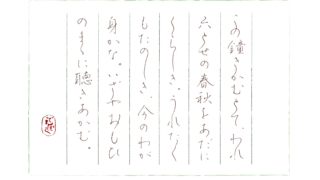 この鐘きかむとて、われ
六とせの春秋をあだに
くらしき。うれたく
もたのしき、今のわが
身かな。いざやおもひ
のまゝに聴きあかむ。